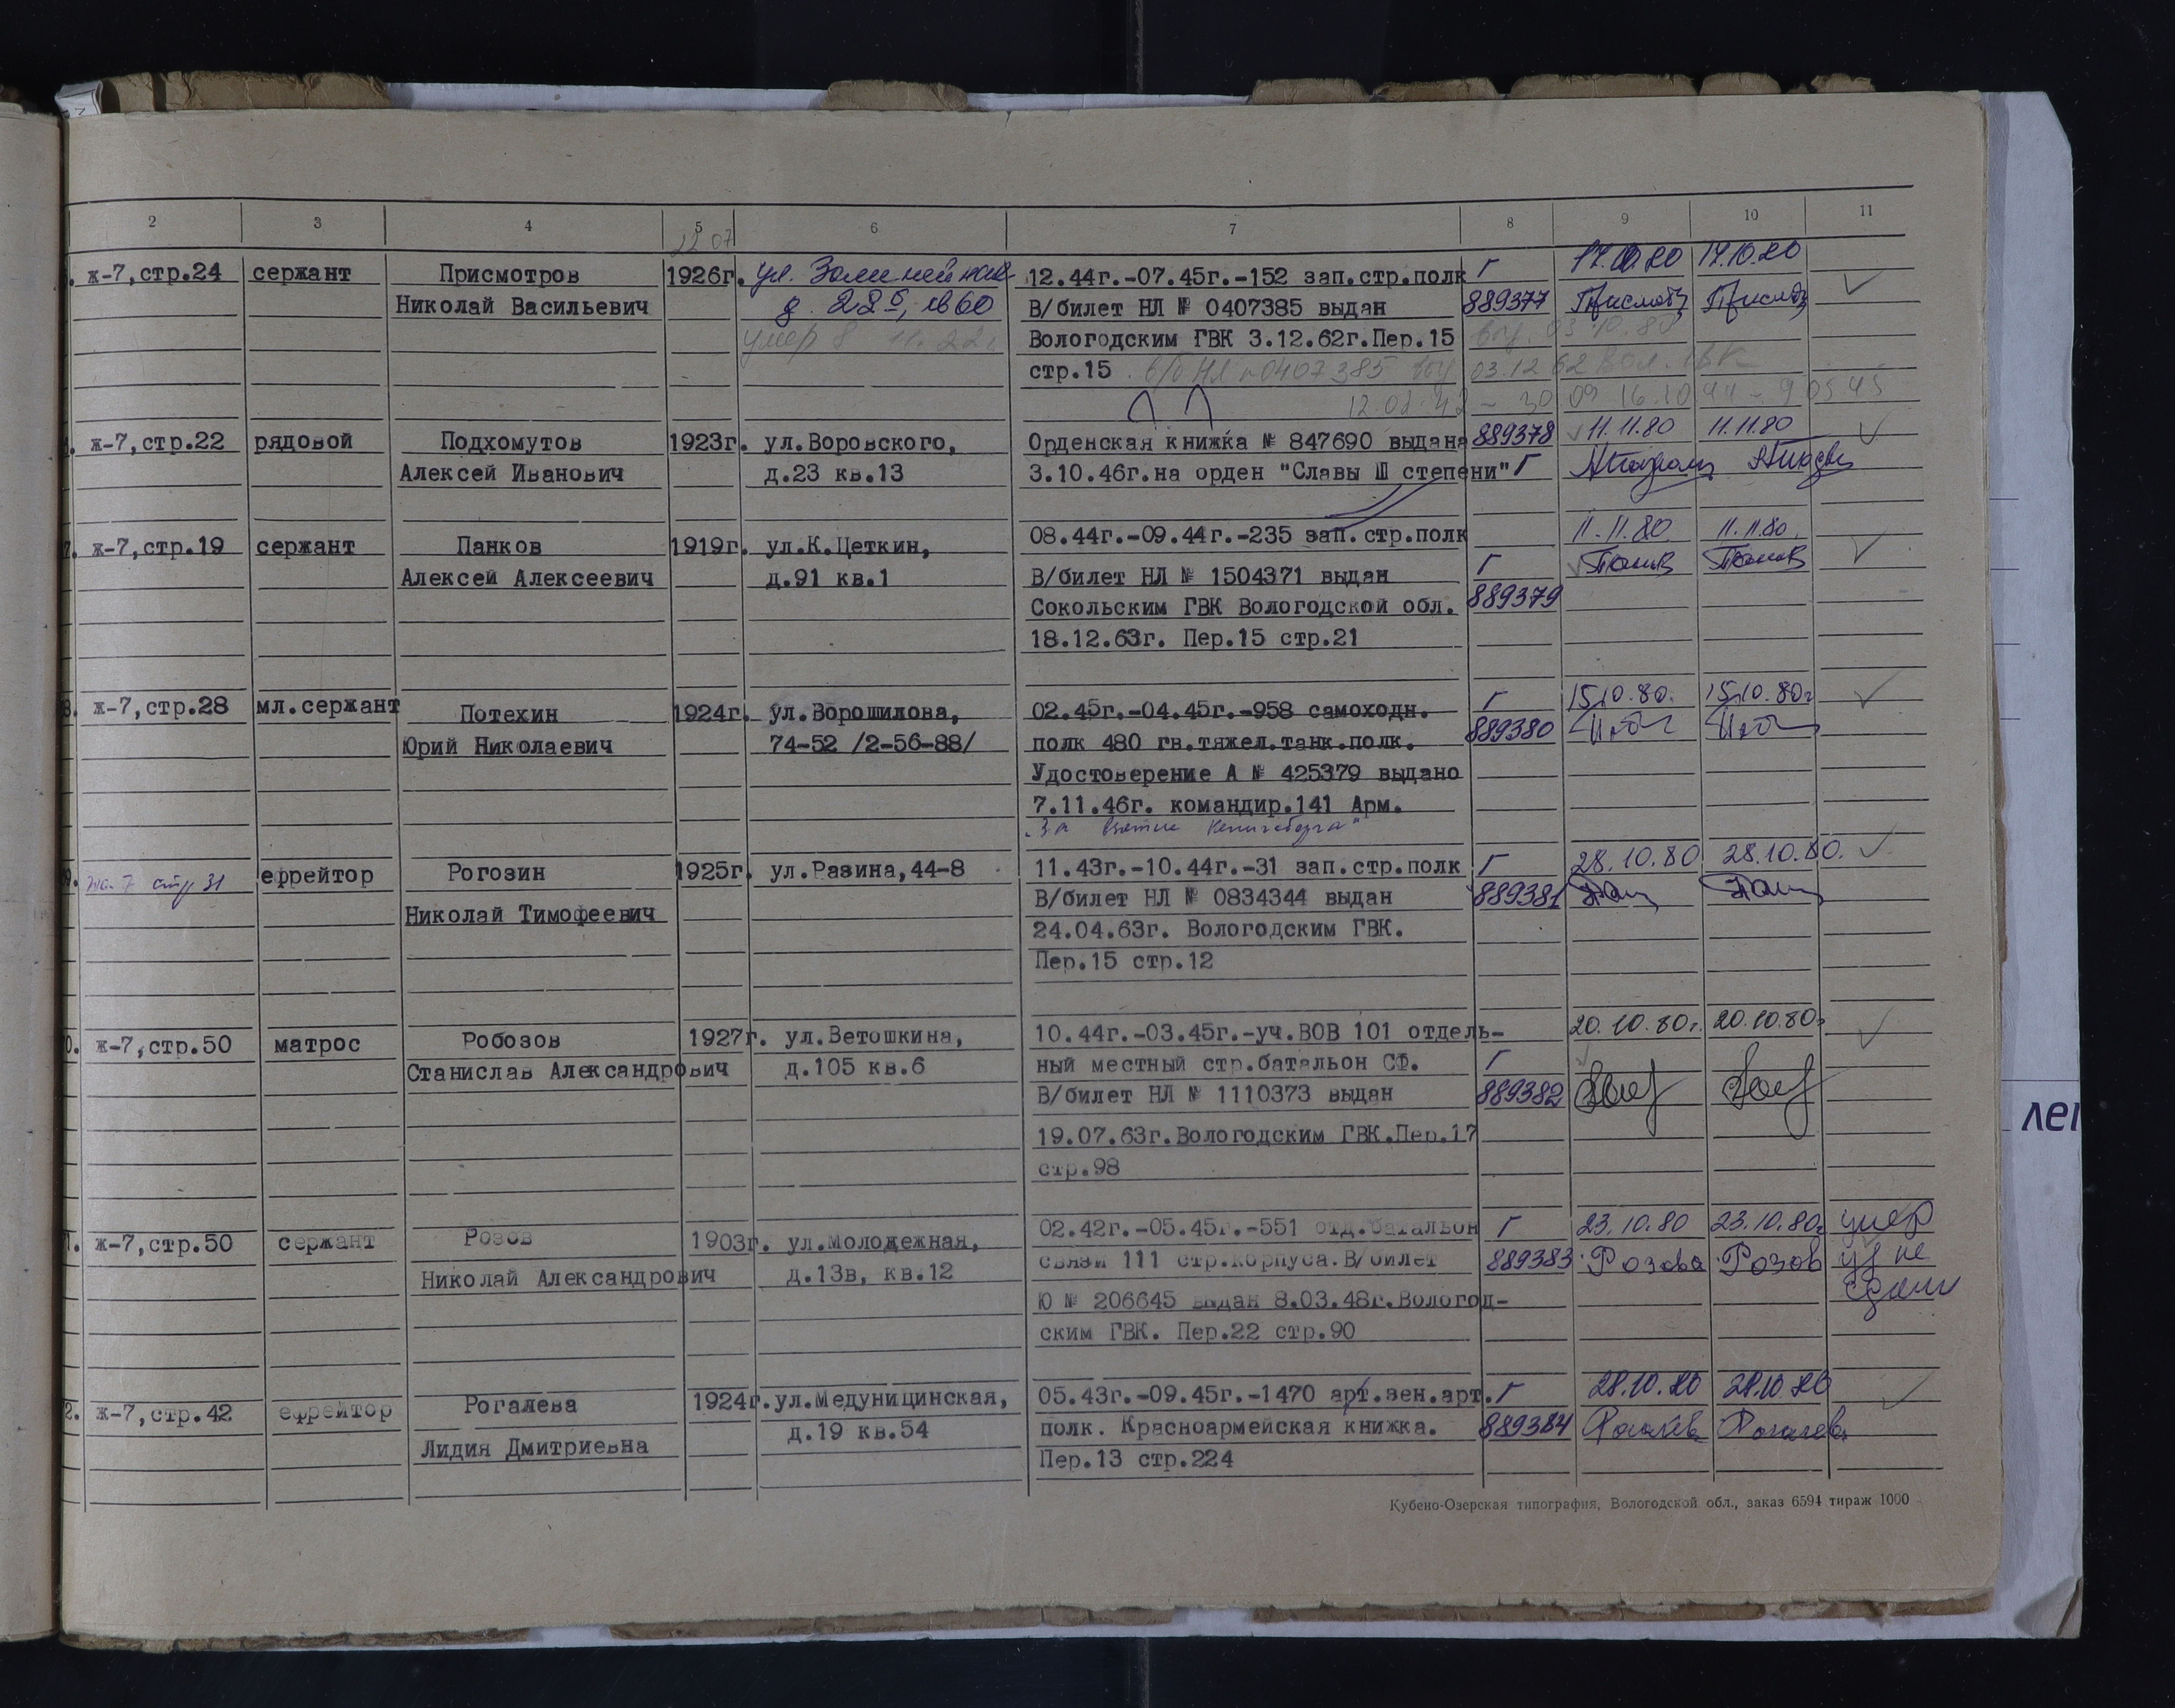 2 3 4 5 6 7 8 9 10 11
22.07
ж-7,стр.24 сержант Присмотров 1926г. ул. 12.44г.-07.45г.-152 зап.стр.полк Г 17.10.80 17.10.80
Николай Васильевич В/билет НЛ № 0407385 выдан 889377
умер 8 11.22г Вологодским ГВК 3.12.62г.Пер.15
стр.15 в/б НЛ №0407385 03.12.62 Вол. ГВК
ж-7,стр.22 рядовой Подхомутов 1923г. ул.Воровского, Орденская книжка № 847690 выдана 889378 11.11.80 11.11.80
Алексей Иванович д.23 кв.13 3.10.46г.на орден "Славы Ш степени" Г
ж-7,стр.19 сержант Панков 1919г. ул.К.Цеткин, 08.44г.-09.44г.-235 зап.стр.полк 11.11.80. 11.11.80.
Алексей Алексеевич д.91 кв.1 В/билет НЛ № 1504371 выдан Г Панков Панков
Сокольским ГВК Вологодской обл. 889379
18.12.63г. Пер.15 стр.21
ж-7,стр.28 мл.сержант Потехин 1924г. ул.Ворошилова, 02.45г.-04.45г.-958 самоходн. Г 15.10.80. 15.10.80г
Юрий Николаевич 74-52 /2-56-88/ полк 480 гв.тяжел.танк.полк. 889380
Удостоверение А № 425379 выдано
7.11.46г. командир.141 Арм.
"За взятие Кенигсберга"
ж-7 стр 31 ефрейтор Рогозин 1925г. ул.Разина,44-8 11.43г.-10.44г.-31 зап.стр.полк Г 28.10.80 28.10.80.
Николай Тимофеевич В/билет НЛ № 0834344 выдан 889381
24.04.63г. Вологодским ГВК.
Пер.15 стр.12
ж-7,стр.50 матрос Робозов 1927г. ул.Ветошкина, 10.44г.-03.45г.-уч.ВОВ 101 отдель- 20.10.80г. 20.10.80г
Станислав Александрович д.105 кв.6 ный местный стр.батальон СФ. Г
В/билет НЛ № 1110373 выдан 889382
19.07.63г.Вологодским ГВК.Пер.17
стр.98
ж-7,стр.50 сержант Розов 1903г. ул.Молодежная, 02.42г.-05.45г.-551 отд.батальон Г 23.10.80 23.10.80г умер
Николай Александрович д.13в, кв.12 связи 111 стр.корпуса.В/билет 889383 Розова Розов уд не
Ю № 206645 выдан 8.03.48г.Вологод- сдали
ским ГВК. Пер.22 стр.90
2. ж-7,стр.42 ефрейтор Рогалева 1924г. ул.Медуницинская, 05.43г.-09.45г.-1470 арт.зен.арт. Г 28.10.80 28.10.80
Лидия Дмитриевна д.19 кв.54 полк. Красноармейская книжка. 889384 Рогалева Рогалева
Пер.13 стр.224
Кубено-Озерская типография, Вологодской обл., заказ 6594 тираж 1000